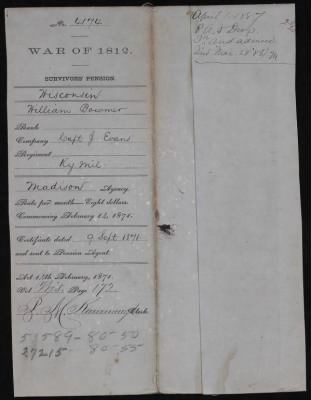 No. 4174
WAR OF 1812.
SURVIVORS' PENSION.
Wisconsin
William Bowmer
Rank
Company Capt J Evans
Regiment
Ky Mil
Madison Agency.
Rate per month—Eight dollars.
Commencing February 14, 1871.
Certificate dated 9 Sept 1871
and sent to Pension Agent.
Act 14th February, 1871.
Vol. Page 172
Clerk.
51589 - 80-50
27215 - 80-55
April 1887